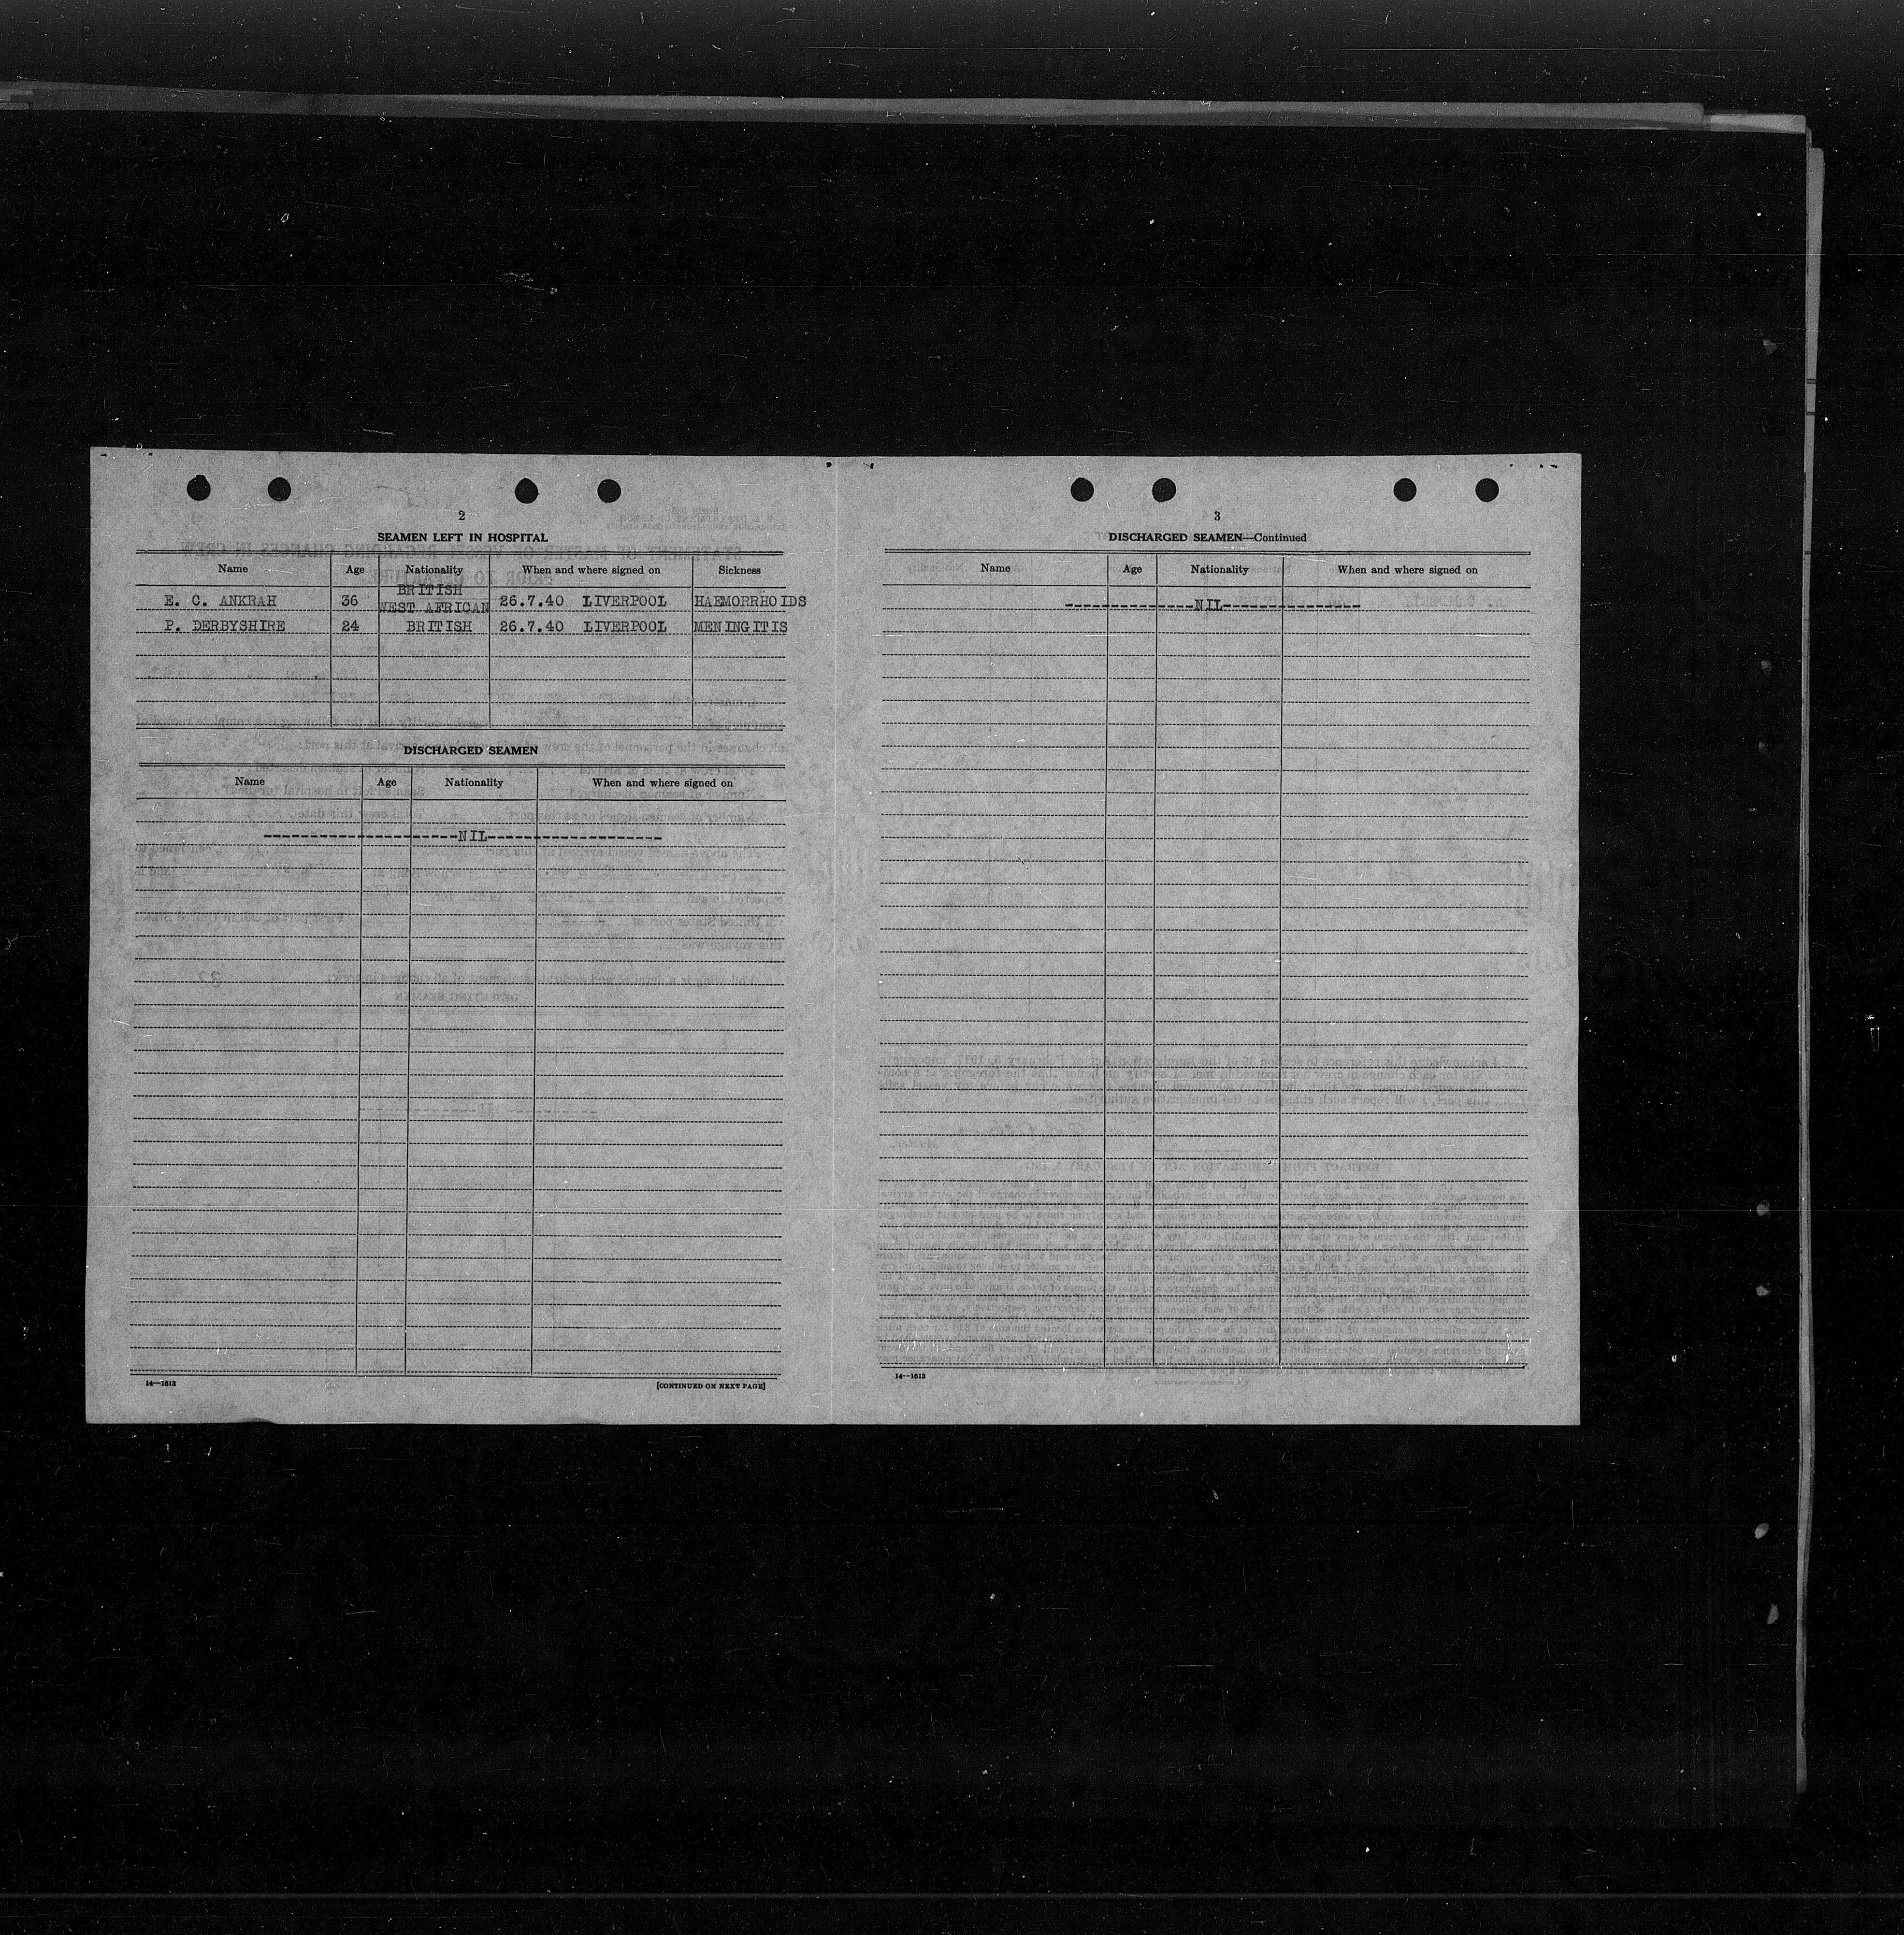 2
SEAMEN LEFT IN HOSPITAL
Name Age Nationality When and where signed on Sickness
E. C. ANKRAH 36 BRITISH WEST AFRICAN 26.7.40 LIVERPOOL HAEMORRHOIDS
P. DERBYSHIRE 24 BRITISH 26.7.40 LIVERPOOL MENINGITIS
DISCHARGED SEAMEN
Name Age Nationality When and where signed on
---------------------NIL-------------------
14—1613 [CONTINUED ON NEXT PAGE]
3
DISCHARGED SEAMEN—Continued
Name Age Nationality When and where signed on
--------------NIL---------------
14—1613